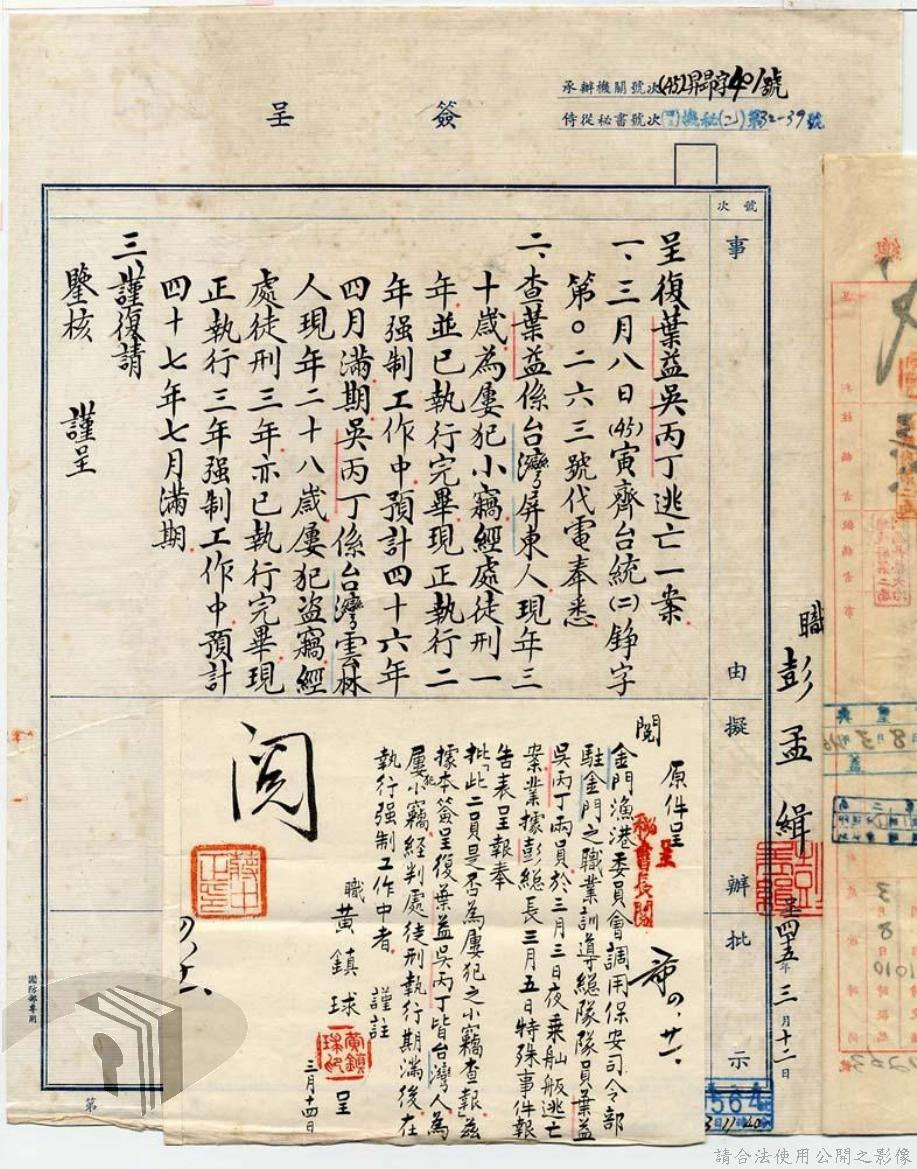 簽呈
承辦機關號次(45)昇昂字401號
侍從秘書號次 機秘(二)第32-39號
號次
事由
擬辦
批示
呈復葉益吳丙丁逃亡一案
一、三月八日(45)寅齊台統(二)錚字
第〇二六三號代電奉悉
二、查葉益係台灣屏東人現年三
十歲為屢犯小竊經處徒刑一
年並已執行完畢現正執行二
年强制工作中預計四十六年
四月滿期吳丙丁係台灣雲林
人現年二十八歲屢犯盜竊經
處徒刑三年亦已執行完畢現
正執行三年强制工作中預計
四十七年七月滿期
三、謹復請
鑒核 謹呈
職彭孟緝
呈四十五年三月十二日
原件呈
呈
秘書長閱
閱
金門漁港委員會調用保安司令部
駐金門之職業訓導總隊隊員葉益
吳丙丁兩員於三月三日夜乘舢舨逃亡
案業據彭總長三月五日特殊事件報
告表呈報奉
批「此二員是否為屢犯之小竊查報」茲
據本簽呈復葉益吳丙丁皆台灣人為
屢犯小竊經判處徒刑執行期滿後在
執行强制工作中者 謹註
職黃鎮球呈
黃鎮球印
三月十四日
閱
蔣中正印
564
3 11 40
國防部專用
第
請合法使用公開之影像